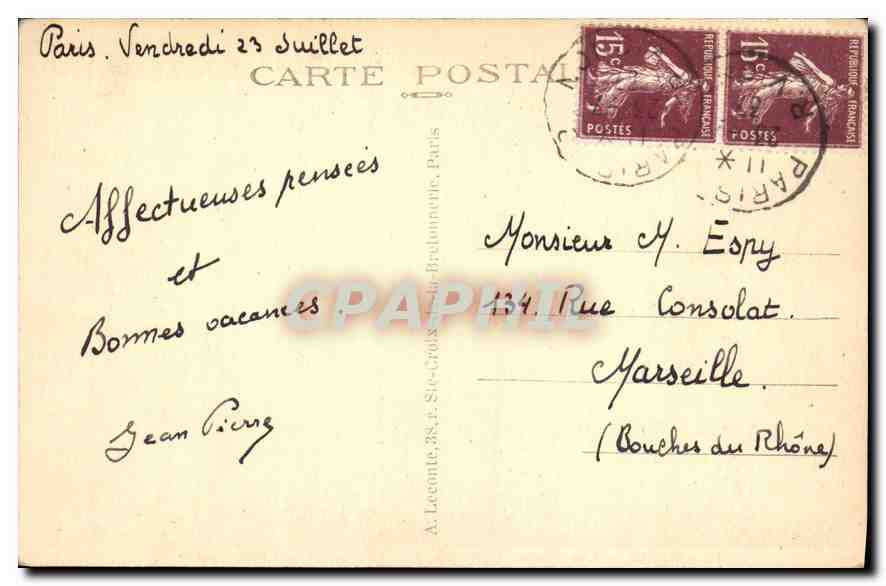 Paris. Vendredi 23 Juillet
CARTE POSTALE
15c
REPUBLIQUE FRANÇAISE
POSTES
15c
REPUBLIQUE FRANÇAISE
POSTES
PARIS
PARIS
11
Affectueuses pensées
et
Bonnes vacances.
Jean Pierre
A. Leconte, 38, r. Ste-Croix-de-la-Bretonnerie, Paris
CPAPHIL
Monsieur M. Espy
134. Rue Consolat.
Marseille.
(Bouches du Rhône)